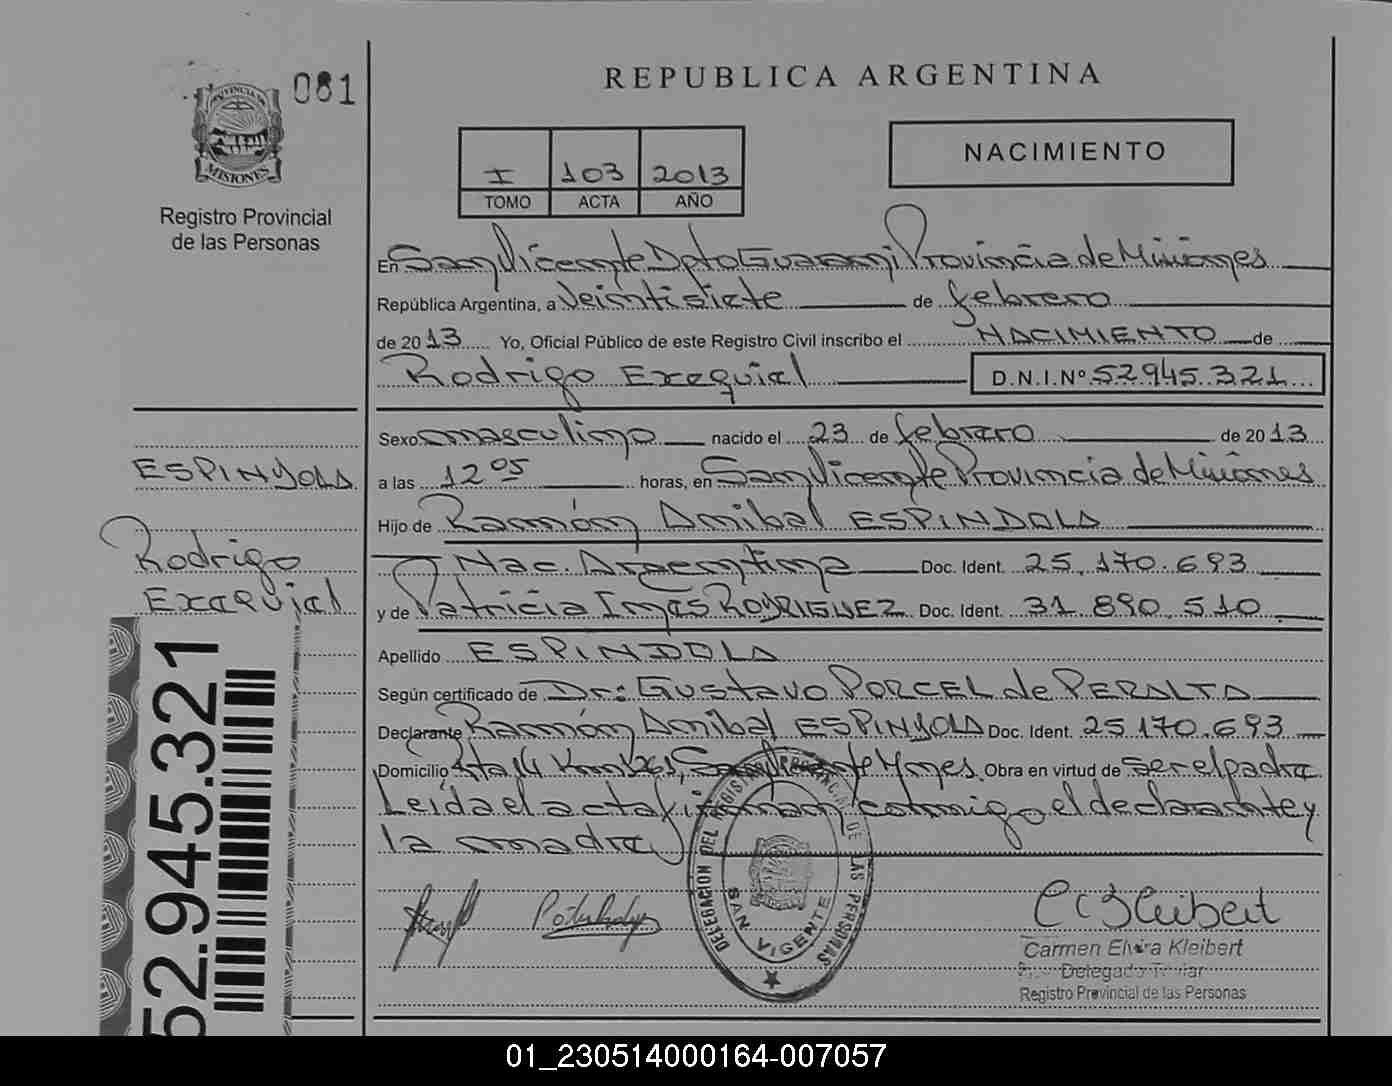 081
PROVINCIA DE
MISIONES
Registro Provincial
de las Personas
REPUBLICA ARGENTINA
I 103 2013
TOMO ACTA AÑO
NACIMIENTO
En San Vicente Dpto Guarani Provincia de Misiones
República Argentina, a Veintisiete de febrero
de 2013 Yo, Oficial Público de este Registro Civil inscribo el NACIMIENTO de
Rodrigo Exequial D.N.I.Nº 52.945.321
Sexo masculino nacido el 23 de febrero de 2013
a las 12 05 horas, en San Vicente Provincia de Misiones
Hijo de Ramón Anibal ESPINDOLA
Nac. Argentina Doc. Ident. 25.170.693
y de Patricia Ines RODRIGUEZ Doc. Ident. 31 890 510
Apellido ESPINDOLA
Según certificado de Dr: Gustavo PORCEL de PERALTA
Declarante Ramón Anibal ESPINDOLA Doc. Ident. 25.170.693
Domicilio Rta 14 Km 1261, San Vicente Mnes Obra en virtud de ser el padre
Leída el acta firman conmigo el declarante y
la madre
ESPINDOLA
Rodrigo
Exequial
52.945.321
DELEGACION DEL REGISTRO PROVINCIAL DE LAS PERSONAS
SAN VICENTE
C E Kleibert
Carmen Elvira Kleibert
Delegada Titular
Registro Provincial de las Personas
01_230514000164-007057